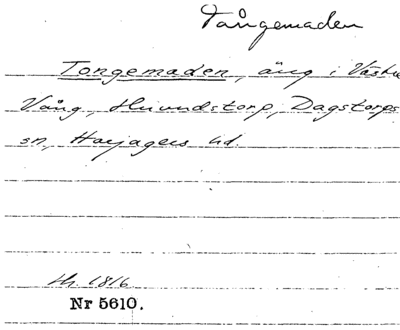 Tångemaden
Tongemaden, äng i Västra
Vång, Hviundstorp, Dagstorps
sn, Harjagers hd.
lh. 1816
Nr 5610.